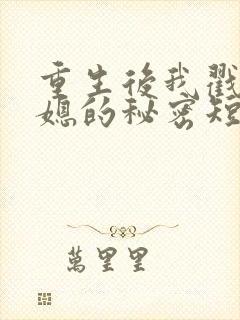 重生後我戳
媳的秘密短
萬里里